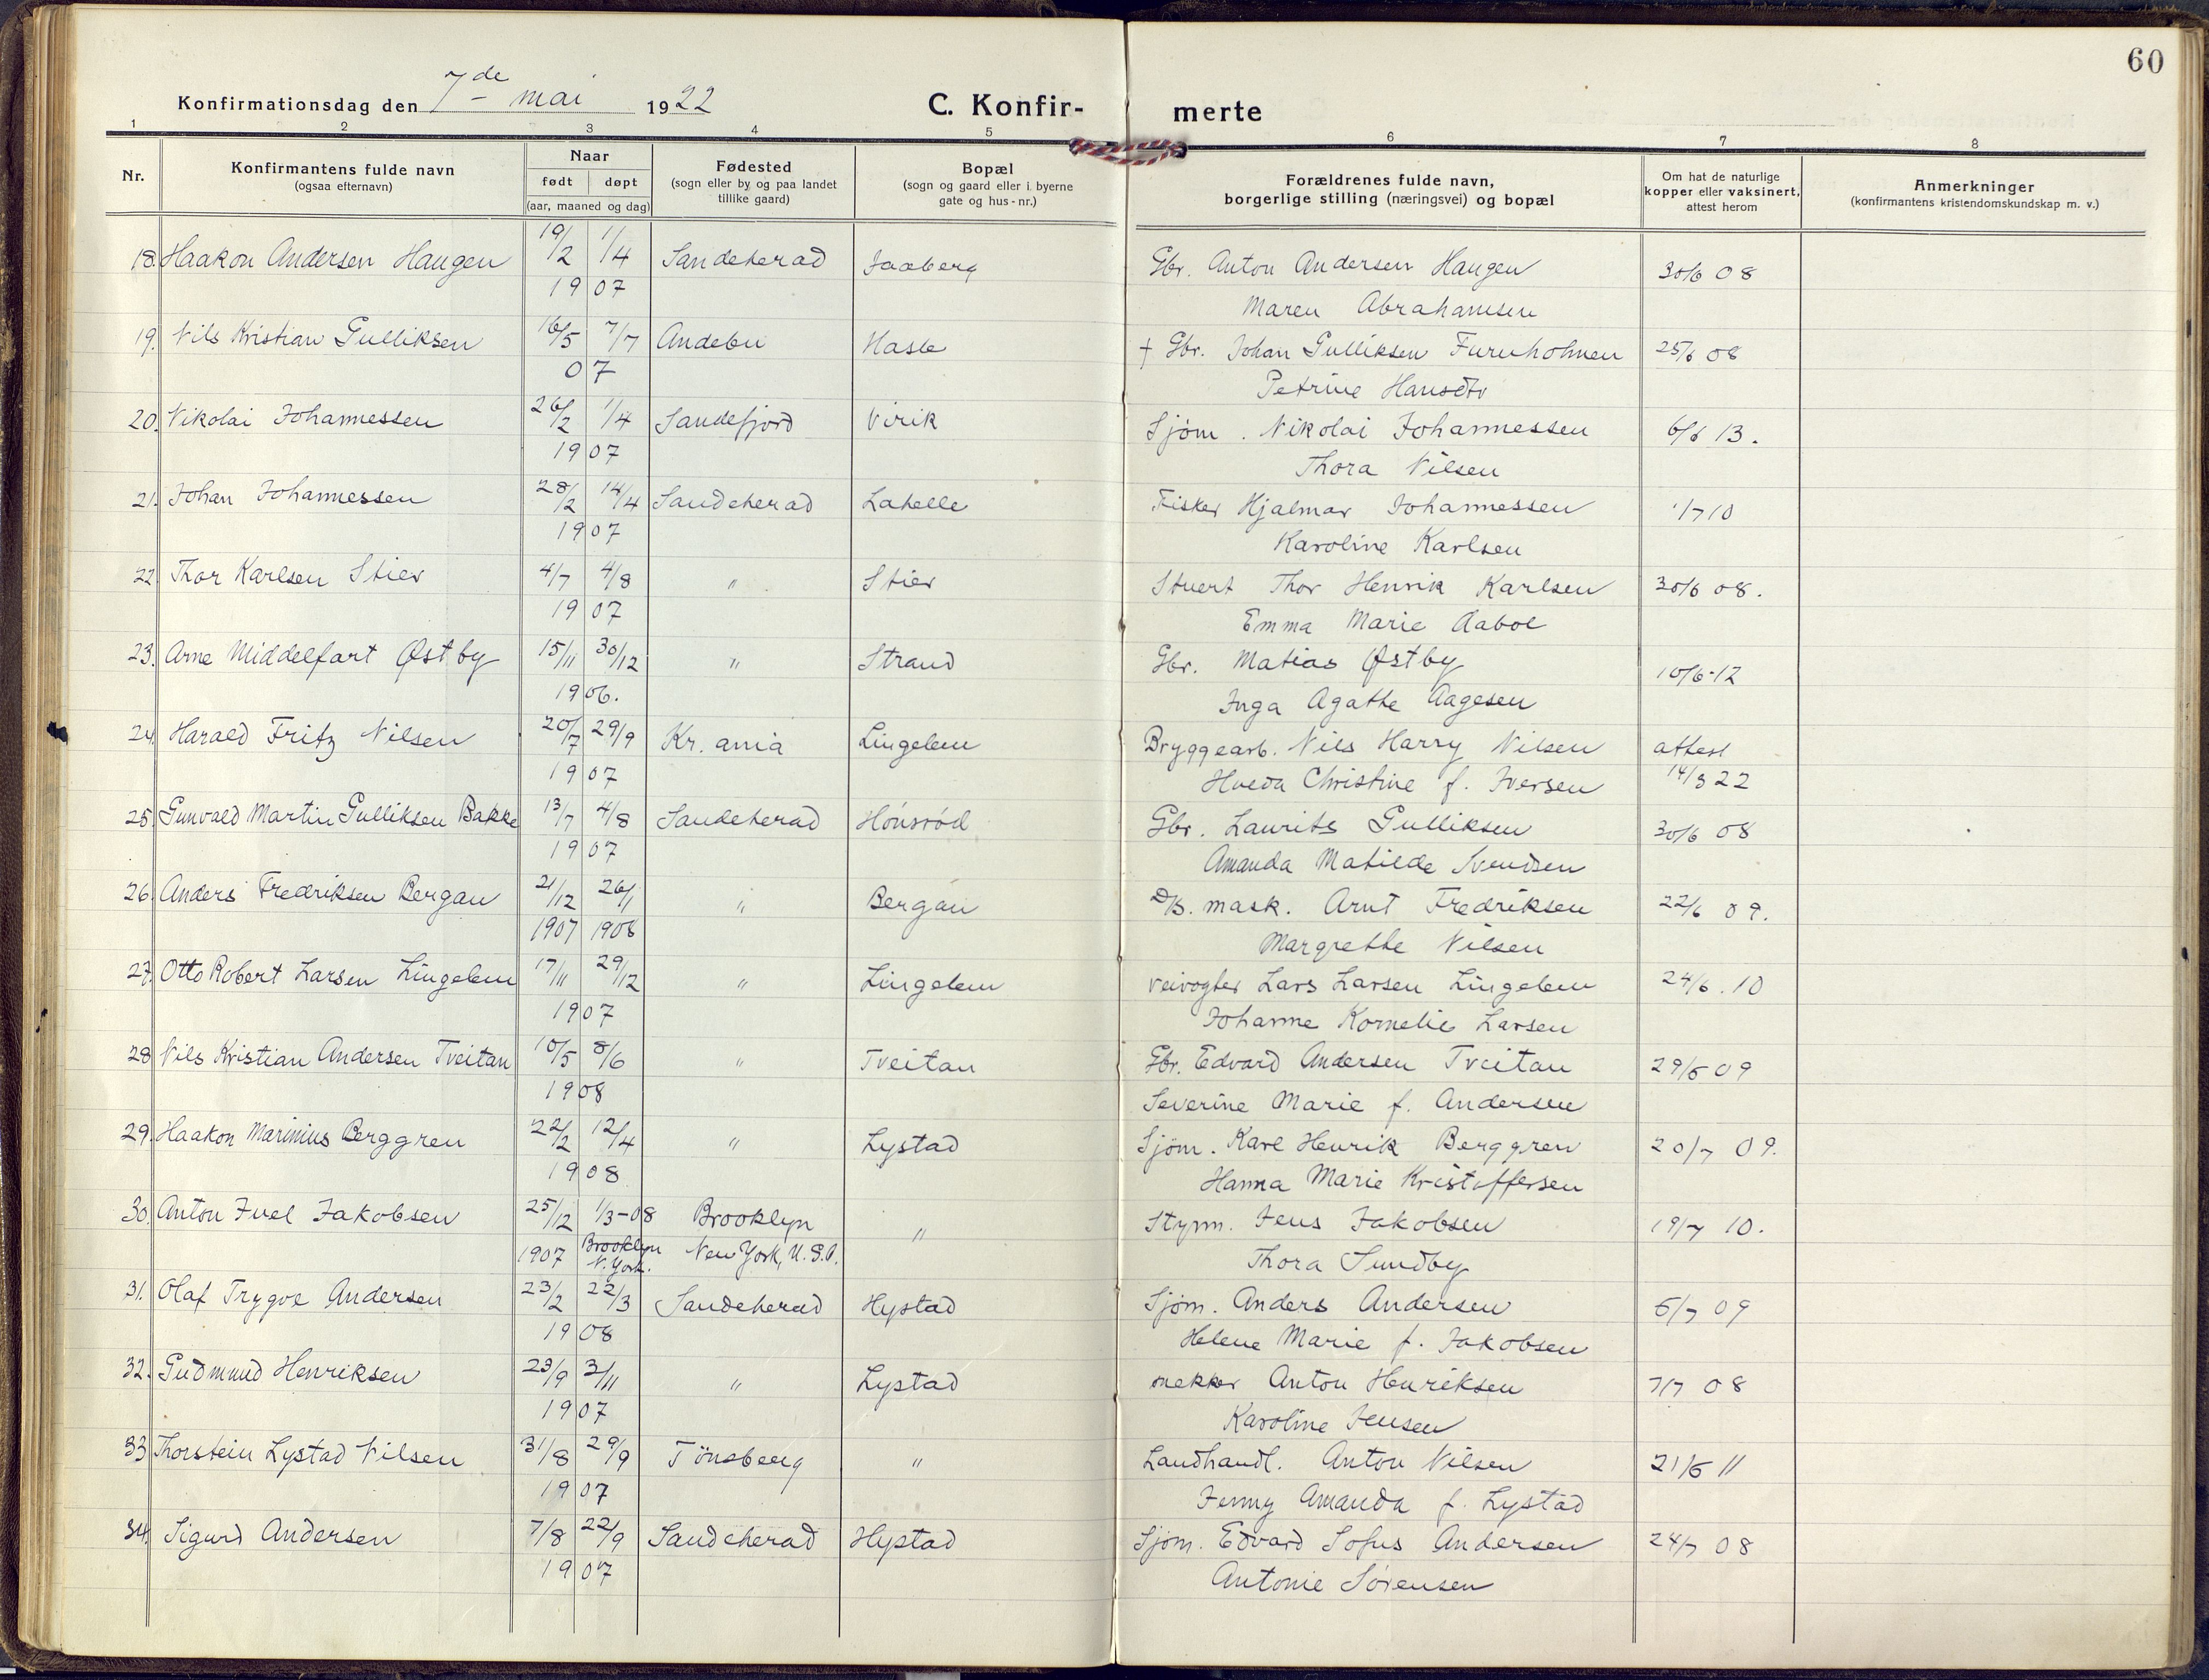 60
Konfirmationsdag den 7de mai 1922
C. Konfir- merte
1 2 3 4 5 6 7 8
Nr.
Konfirmantens fulde navn
(ogsaa efternavn)
Naar
født døpt
(aar, maaned og dag)
Fødested
(sogn eller by og paa landet
tillike gaard)
Bopæl
(sogn og gaard eller i byerne
gate og hus-nr.)
Forældrenes fulde navn,
borgerlige stilling (næringsvei) og bopæl
Om hat de naturlige
kopper eller vaksinert,
attest herom
Anmerkninger
(konfirmantens kristendomskundskap m. v.)
18. Haakon Andersen Haugen 19/2 1/4 Sandeherad Jaaberg Gbr. Anton Andersen Haugen 30/6 08
1907 Maren Abrahamsen
19. Nils Kristian Gulliksen 16/5 7/7 Andebu Hasle † Gbr. Johan Gulliksen Furuholmen 25/6 08
07 Petrine Hansdtr
20. Nikolai Johannessen 26/2 1/4 Sandefjord Virik Sjøm. Nikolai Johannessen 6/6 13.
1907 Thora Nilsen
21. Johan Johannessen 28/2 14/4 Sandeherad Lahelle Fisker Hjalmar Johannessen 1/7 10
1907 Karoline Karlsen
22. Thor Karlsen Stier 4/7 4/8 " Stier Stuert Thor Henrik Karlsen 30/6 08.
1907 Emma Marie Aaboe
23. Arne Middelfart Østby 15/11 30/12 " Strand Gbr. Matias Østby 10/6-12
1906. Inga Agathe Aagesen
24. Harald Fritz Nilsen 20/7 29/9 Kr.ania Lingelem Bryggearb. Nils Harry Nilsen attest
1907 Christine f. Iversen 14/3 22
25. Gunvald Martin Gulliksen Bakke 13/7 4/8 Sandeherad Hønsrød Gbr. Laurits Gulliksen 30/6 08
1907 Amanda Matilde Svendsen
26. Anders Fredriksen Bergan 21/12 26/1 " Bergan D/S. mask. Arnt Fredriksen 22/6 09.
1907 1908 Margrethe Nilsen
27. Otto Robert Larsen Lingelem 17/11 29/12 " Lingelem veivogter Lars Larsen Lingelem 24/6. 10
1907 Johanne Kornelie Larsen
28. Nils Kristian Andersen Tveitan 10/5 8/6 " Tveitan Gbr. Edvard Andersen Tveitan 29/6 09
1908 Severine Marie f. Andersen
29. Haakon Marinius Berggren 22/2 12/4 " Lystad Sjøm. Karl Henrik Berggren 20/7 09.
1908 Hanna Marie Kristoffersen
30. Anton Juel Jakobsen 25/12 1/3-08 Brooklyn " Styrm. Jens Jakobsen 19/7 10.
1907 Brooklyn N. York. New York, U.S.A. Thora Sundby
31. Olaf Trygve Andersen 23/2 22/3 Sandeherad Hystad Sjøm. Anders Andersen 5/7 09
1908 Helene Marie f. Jakobsen
32. Gudmund Henriksen 23/9 3/11 " Lystad mekker Anton Henriksen 7/7 08
1907 Karoline Jensen
33. Thorstein Lystad Nilsen 31/8 29/9 Tønsberg " Landhandl. Anton Nilsen 21/6 11
1907 Jenny Amanda f. Lystad
34. Sigurd Andersen 7/8 22/9 Sandeherad Hystad Sjøm. Edvard Sofus Andersen 24/7 08
1907 Antonie Sørensen